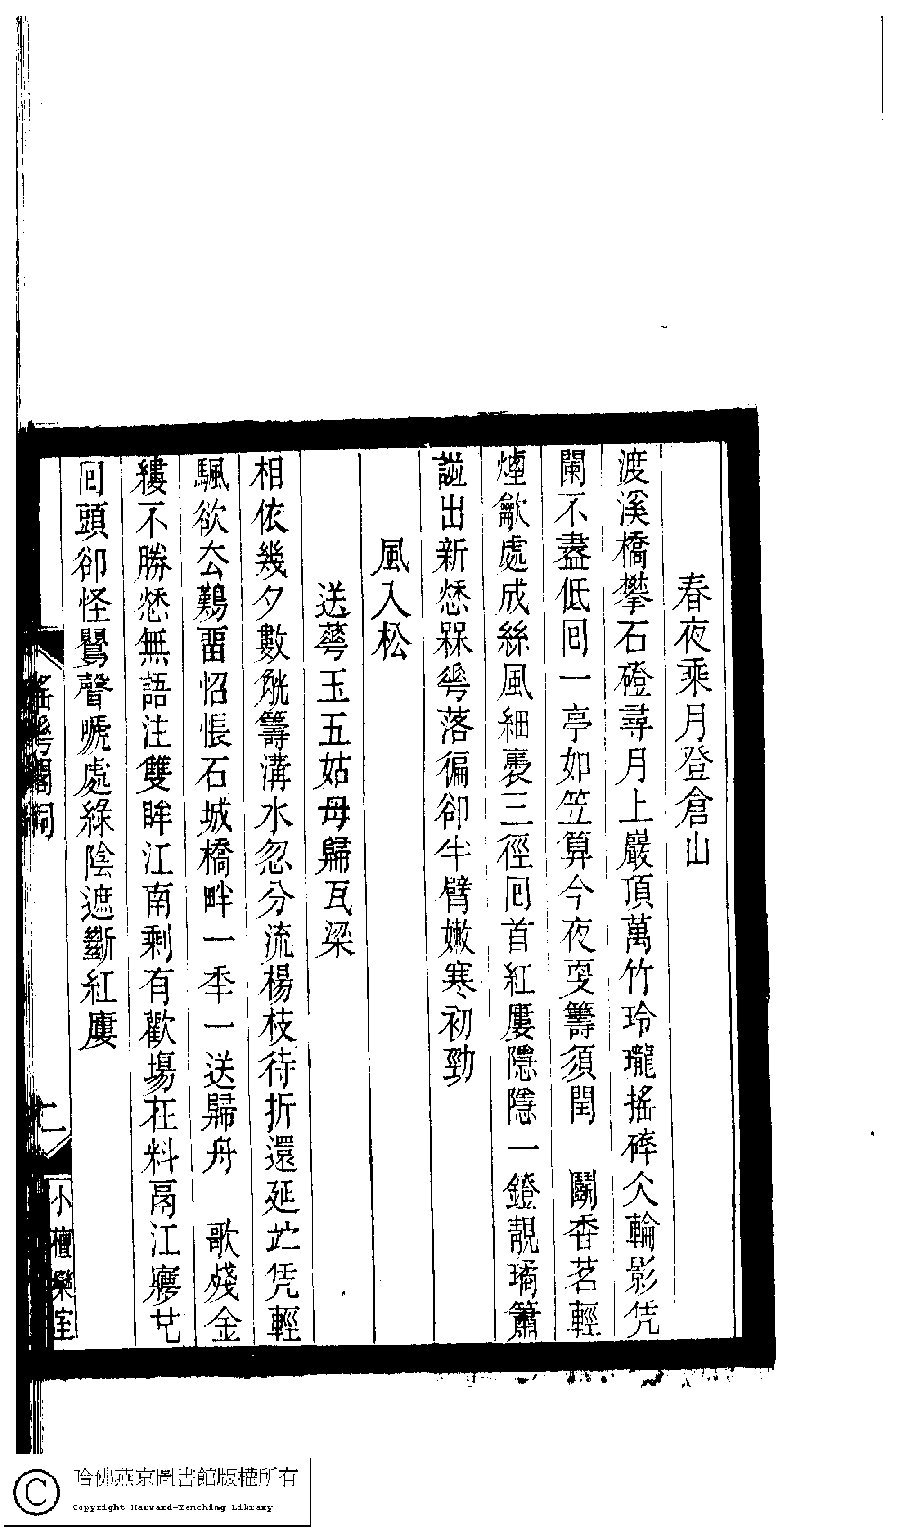 春夜乘月登倉山
渡溪橋攀石磴尋月上巖頂萬竹玲瓏搖碎仌輪影凭
闌不盡低回一亭如笠算今夜叓籌須閏　鬭香茗輕
煙歕處成絲風細裊三徑回首紅廔隱隱一鐙靚璚簫
謚出新愁槑㝵落偏卻半臂嫩寒初勁
風入松
送蕚玉五姑母歸亙梁
相依幾夕數觥籌溝水忽分流楊枝待折還延竚凭輕
颿欲厺鷬畱怊悵石城橋畔一秊一送歸舟　歌殘金
縷不勝愁無語注雙眸江南剩有歡場在料鬲江㝱芚
回頭卻怪鸎聲嗁處綠陰遮斷紅廔
閣詞
二
小檀欒室
哈佛燕京圖書館版權所有
Copyright Harvard-Yenching Library